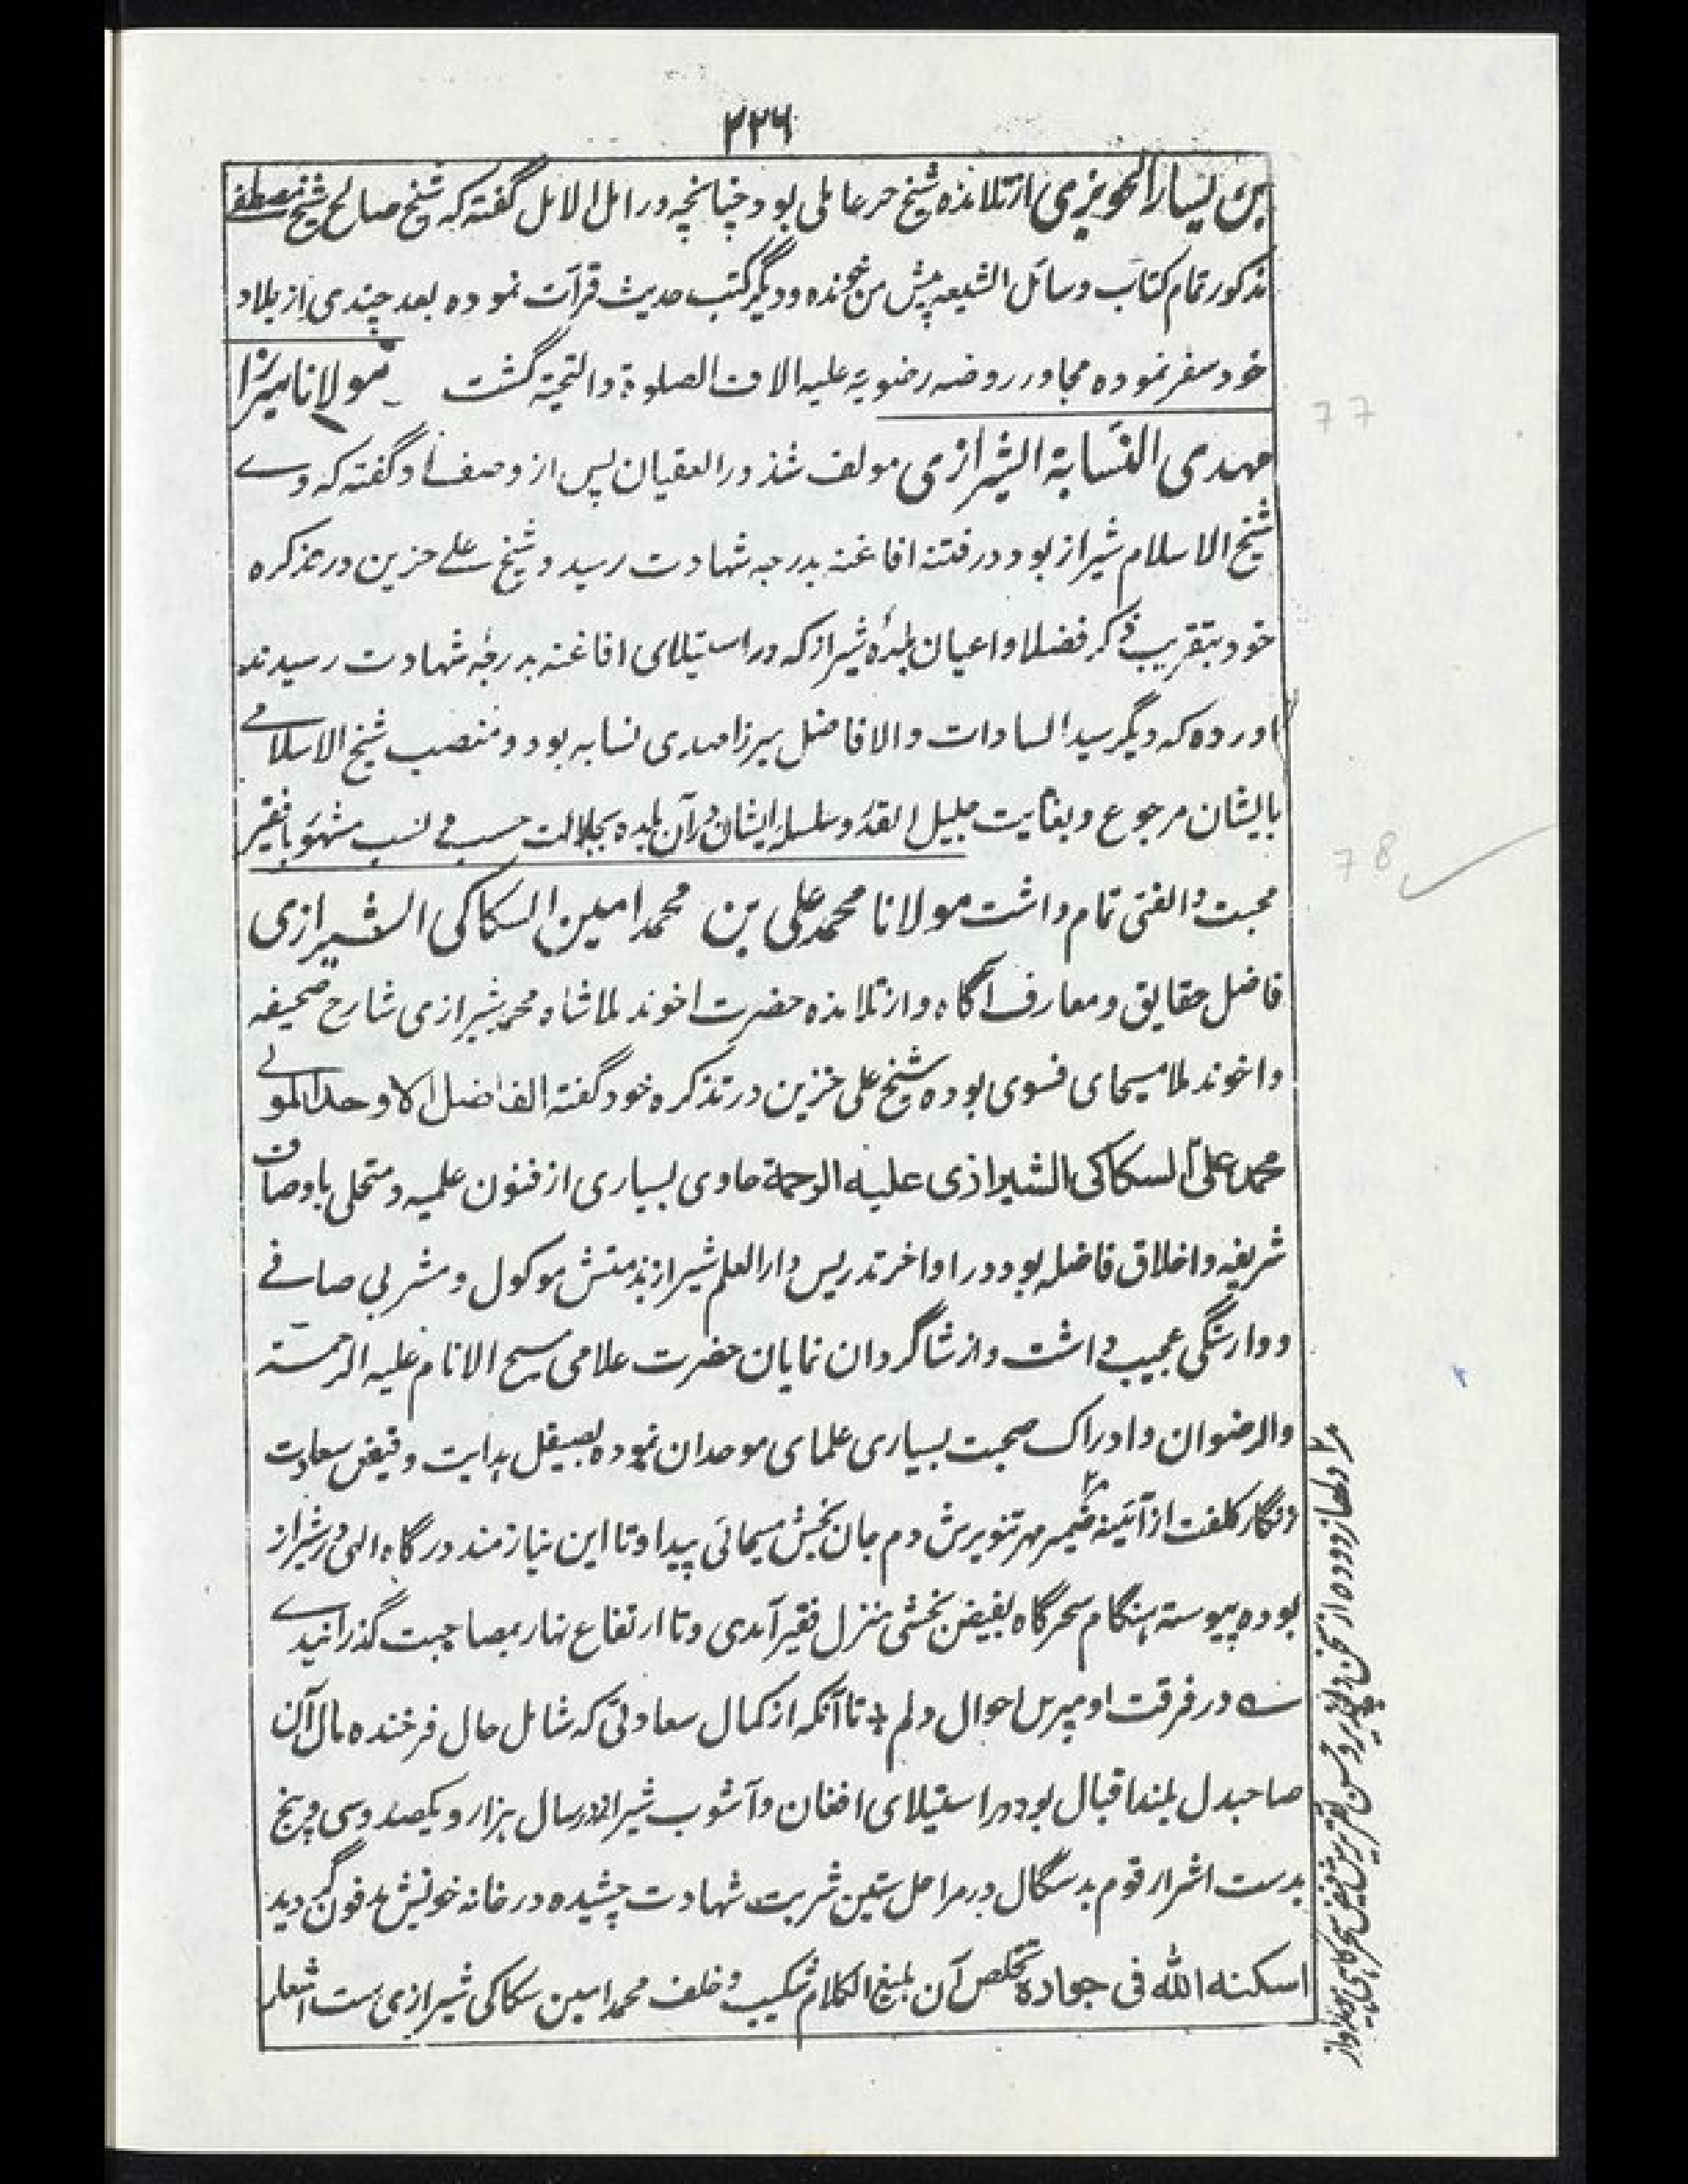 ۲۲۶
بن یسار الحویزی از تلامذه شیخ حر عاملی بود چنانچه در امل الامل گفته که شیخ صالح شیخ مصطفی
مذکور تمام کتاب وسائل الشیعه پیش من خونده و دیگر کتب حدیث قرآت نموده بعد چندی از بلاد
خود سفر نموده مجاور روضه رضویه علیه الاف الصلوة والتحیة گشت مولانا میرزا
مهدی النسابة الشیرازی مولف شذور العقیان پس از وصف او گفته که وے
شیخ الاسلام شیراز بود در فتنه افاغنه بدرجه شهادت رسید و شیخ علے حزین در تذکره
خود بتقریب ذکر فضلا و اعیان بلدۀ شیراز که در استیلای افاغنه بدرجۀ شهادت رسیدند
آورده که دیگر سید السادات والافاضل میرزا مهدی نسابه بود و منصب شیخ الاسلامے
بایشان مرجوع و بغایت جلیل القدر و سلسله ایشان در آن بلده بجلالت حسب و نسب مشهور با فقیر
محبت و الفتی تمام داشت مولانا محمد علی بن محمد امین السکاکی الشیرازی
فاضل حقایق و معارف آگاه و از تلامذه حضرت اخوند ملا شاه محمد شیرازی شارح صحیفه
و اخوند ملا مسیحای فسوی بوده شیخ علی حزین در تذکره خود گفته الفاضل الاوحد المولے
محمد علی السکاکی الشیرازی علیه الرحمة حاوی بسیاری از فنون علمیه و متحلی باوصاف
شریفه و اخلاق فاضله بود در اواخر تدریس دار العلم شیراز بذمتش موکول و مشربی صافے
و وارستگی عجیب داشت و از شاگردان نمایان حضرت علامی مسیح الانام علیه الرحمة
والرضوان و ادراک صحبت بسیاری علمای موحدان نموده بصیقل هدایت و فیض سعادت
زنگار کلفت از آئینه ضمیر مهر تنویرش دم جان بخش مسیحائی پیدا و تا این نیازمند درگاه الهی در شیراز
بوده پیوسته هنگام سحرگاه بفیض بخشی منزل فقیر آمدی و تا ارتفاع نهار بمصاحبت گذرانیدے
ے در فرقت او مپرس احوال دلم ؛ تا آنکه از کمال سعادتی که شامل حال فرخنده مال آن
صاحبدل بلند اقبال بود در استیلای افغان و آشوب شیراز در سال هزار و یکصد و سی و پنج
بدست اشرار قوم بدسگال در مراحل ستین شربت شهادت چشیده در خانه خویش مدفون گردید
اسکنه الله فی جواره تخلص آن بلیغ الکلام شکیب و خلف محمد امین سکاکی شیرازی ست
77
78